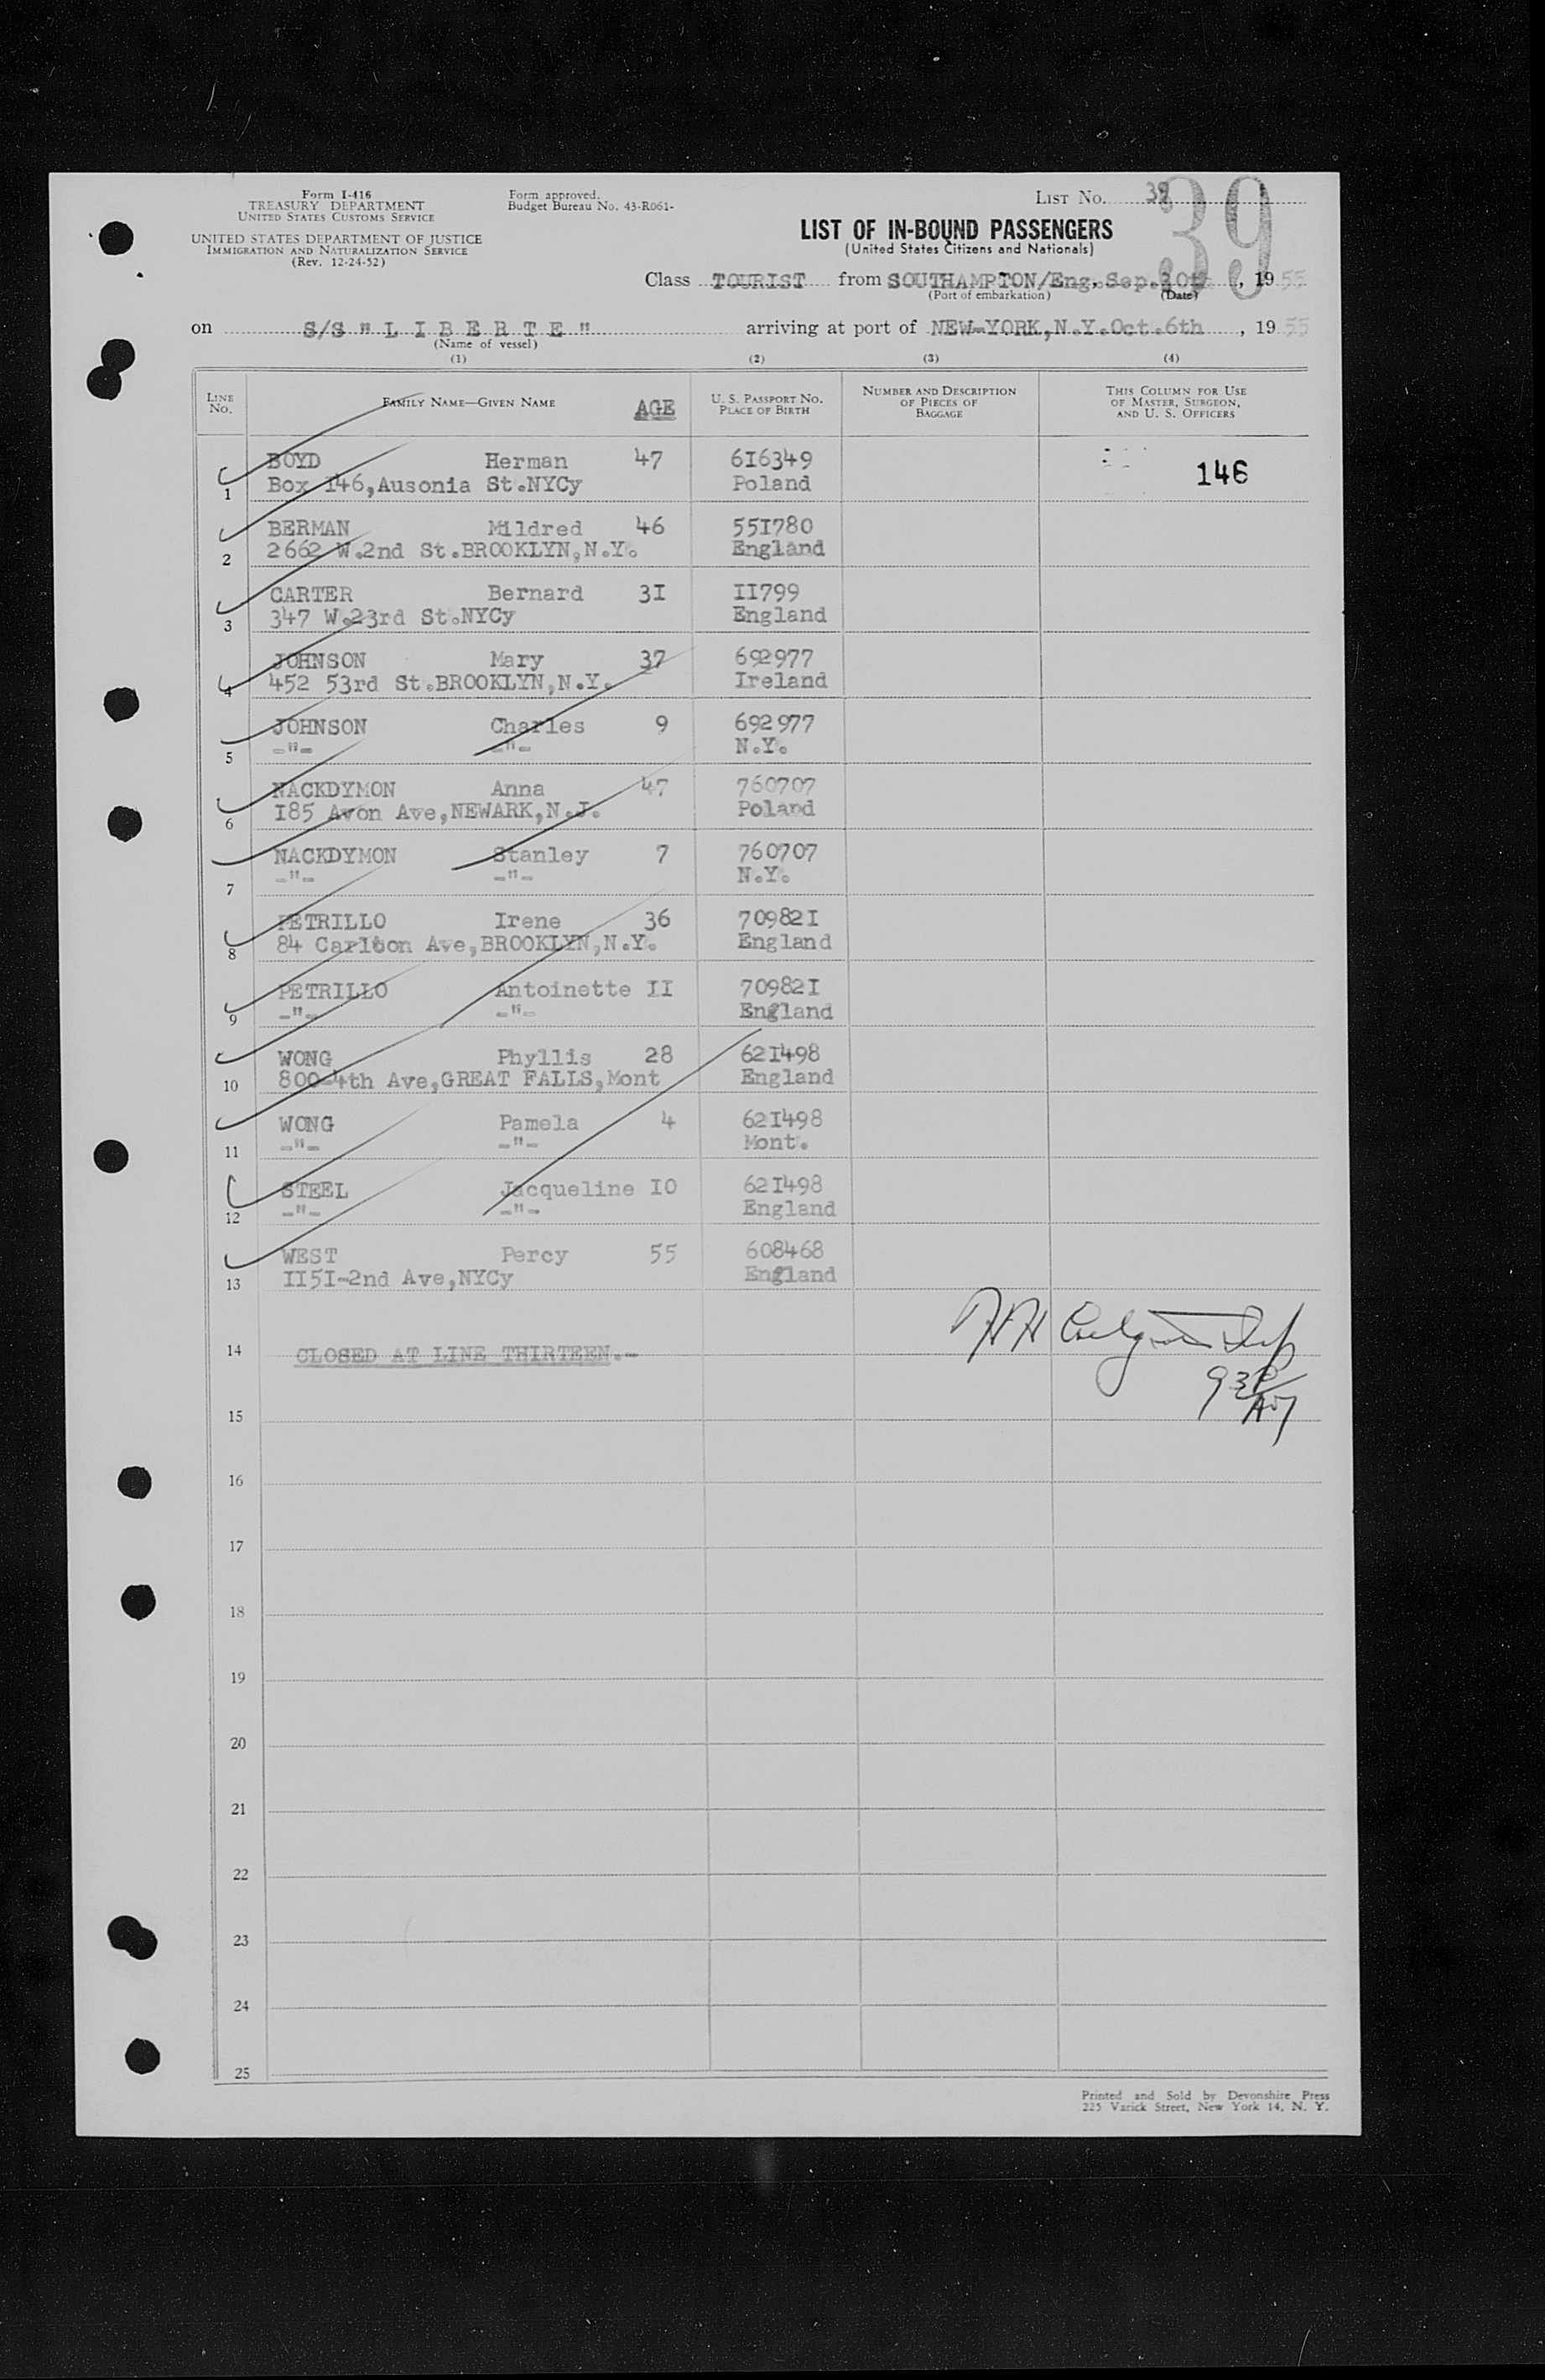 Form I-416
TREASURY DEPARTMENT
UNITED STATES CUSTOMS SERVICE
UNITED STATES DEPARTMENT OF JUSTICE
IMMIGRATION AND NATURALIZATION SERVICE
(Rev. 12-24-52)
Form approved.
Budget Bureau No. 43-R061-
LIST NO. 39
39
LIST OF IN-BOUND PASSENGERS
(United States Citizens and Nationals)
Class TOURIST from SOUTHAMPTON/Eng, Sep. 30th, 1955
(Port of embarkation) (Date)
on S/S "L I B E R T E" arriving at port of NEW-YORK,N.Y.Oct.6th, 1955
(Name of vessel)
(1) (2) (3) (4)
LINE NO. FAMILY NAME—GIVEN NAME AGE U. S. PASSPORT NO. PLACE OF BIRTH NUMBER AND DESCRIPTION OF PIECES OF BAGGAGE THIS COLUMN FOR USE OF MASTER, SURGEON, AND U. S. OFFICERS
BOYD Herman 47 6I6349
1 Box 146,Ausonia St.NYCy Poland 146
BERMAN Mildred 46 55I780
2 2662 W.2nd St.BROOKLYN,N.Y. England
CARTER Bernard 3I II799
3 347 W.23rd St.NYCy England
JOHNSON Mary 37 692977
4 452 53rd St.BROOKLYN,N.Y. Ireland
JOHNSON Charles 9 692977
5 -"- -"- N.Y.
NACKDYMON Anna 47 760707
6 I85 Avon Ave,NEWARK,N.J. Poland
NACKDYMON Stanley 7 760707
7 -"- -"- N.Y.
PETRILLO Irene 36 70982I
8 84 Carlton Ave,BROOKLYN,N.Y. England
PETRILLO Antoinette II 70982I
9 -"- -"- England
WONG Phyllis 28 62I498
10 800-4th Ave,GREAT FALLS,Mont England
WONG Pamela 4 62I498
11 -"- -"- Mont.
STEEL Jacqueline IO 62I498
12 -"- -"- England
WEST Percy 55 608468
13 II5I-2nd Ave,NYCy England
14 CLOSED AT LINE THIRTEEN.-
15
16
17
18
19
20
21
22
23
24
25
Printed and Sold by Devonshire Press
225 Varick Street, New York 14, N. Y.